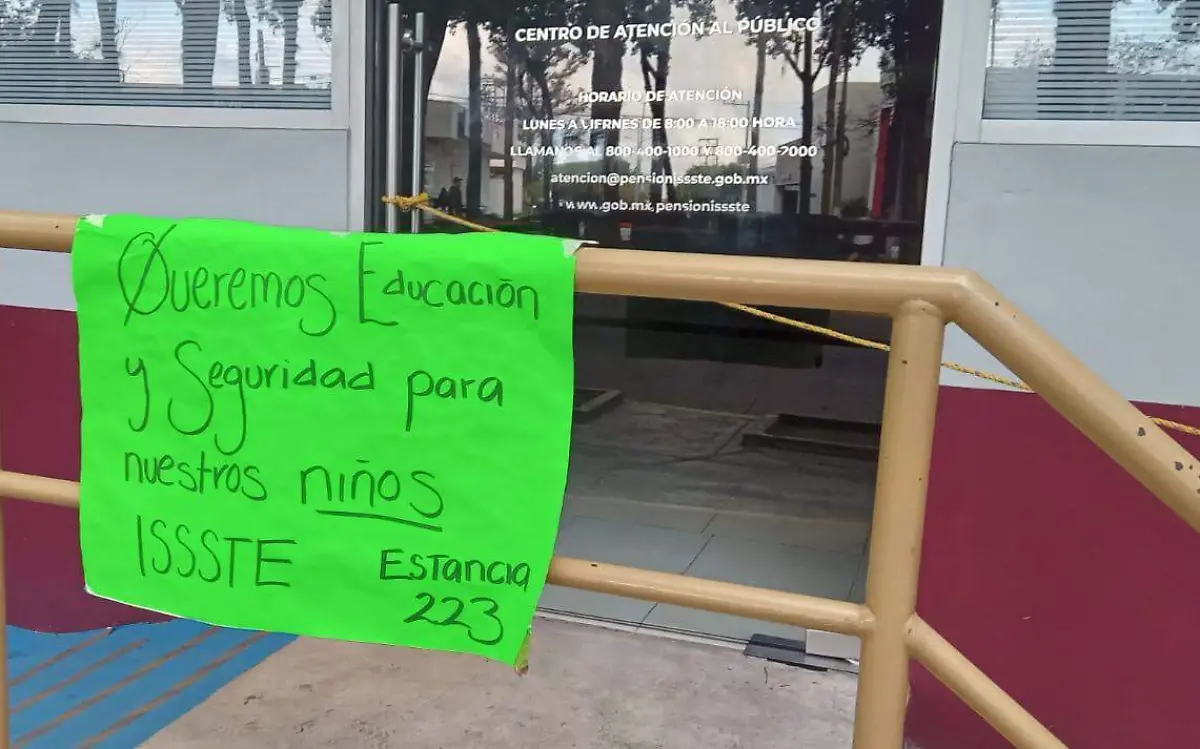 CENTRO DE ATENCIÓN AL PÚBLICO
HORARIO DE ATENCIÓN
LUNES A VIERNES DE 8:00 A 18:00 HORA
LLAMANOS AL 800-400-1000 Y 800-400-2000
atencion@pensionissste.gob.mx
www.gob.mx/pensionissste
Queremos Educación
y Seguridad para
nuestros niños
ISSSTE Estancia
223